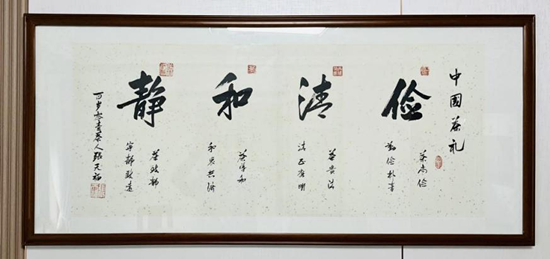 中国茶礼
俭
茶尚俭
勤俭朴素
清
茶贵清
清正廉明
和
茶导和
和衷共济
静
茶致静
宁静致远
百岁 茶人张天福